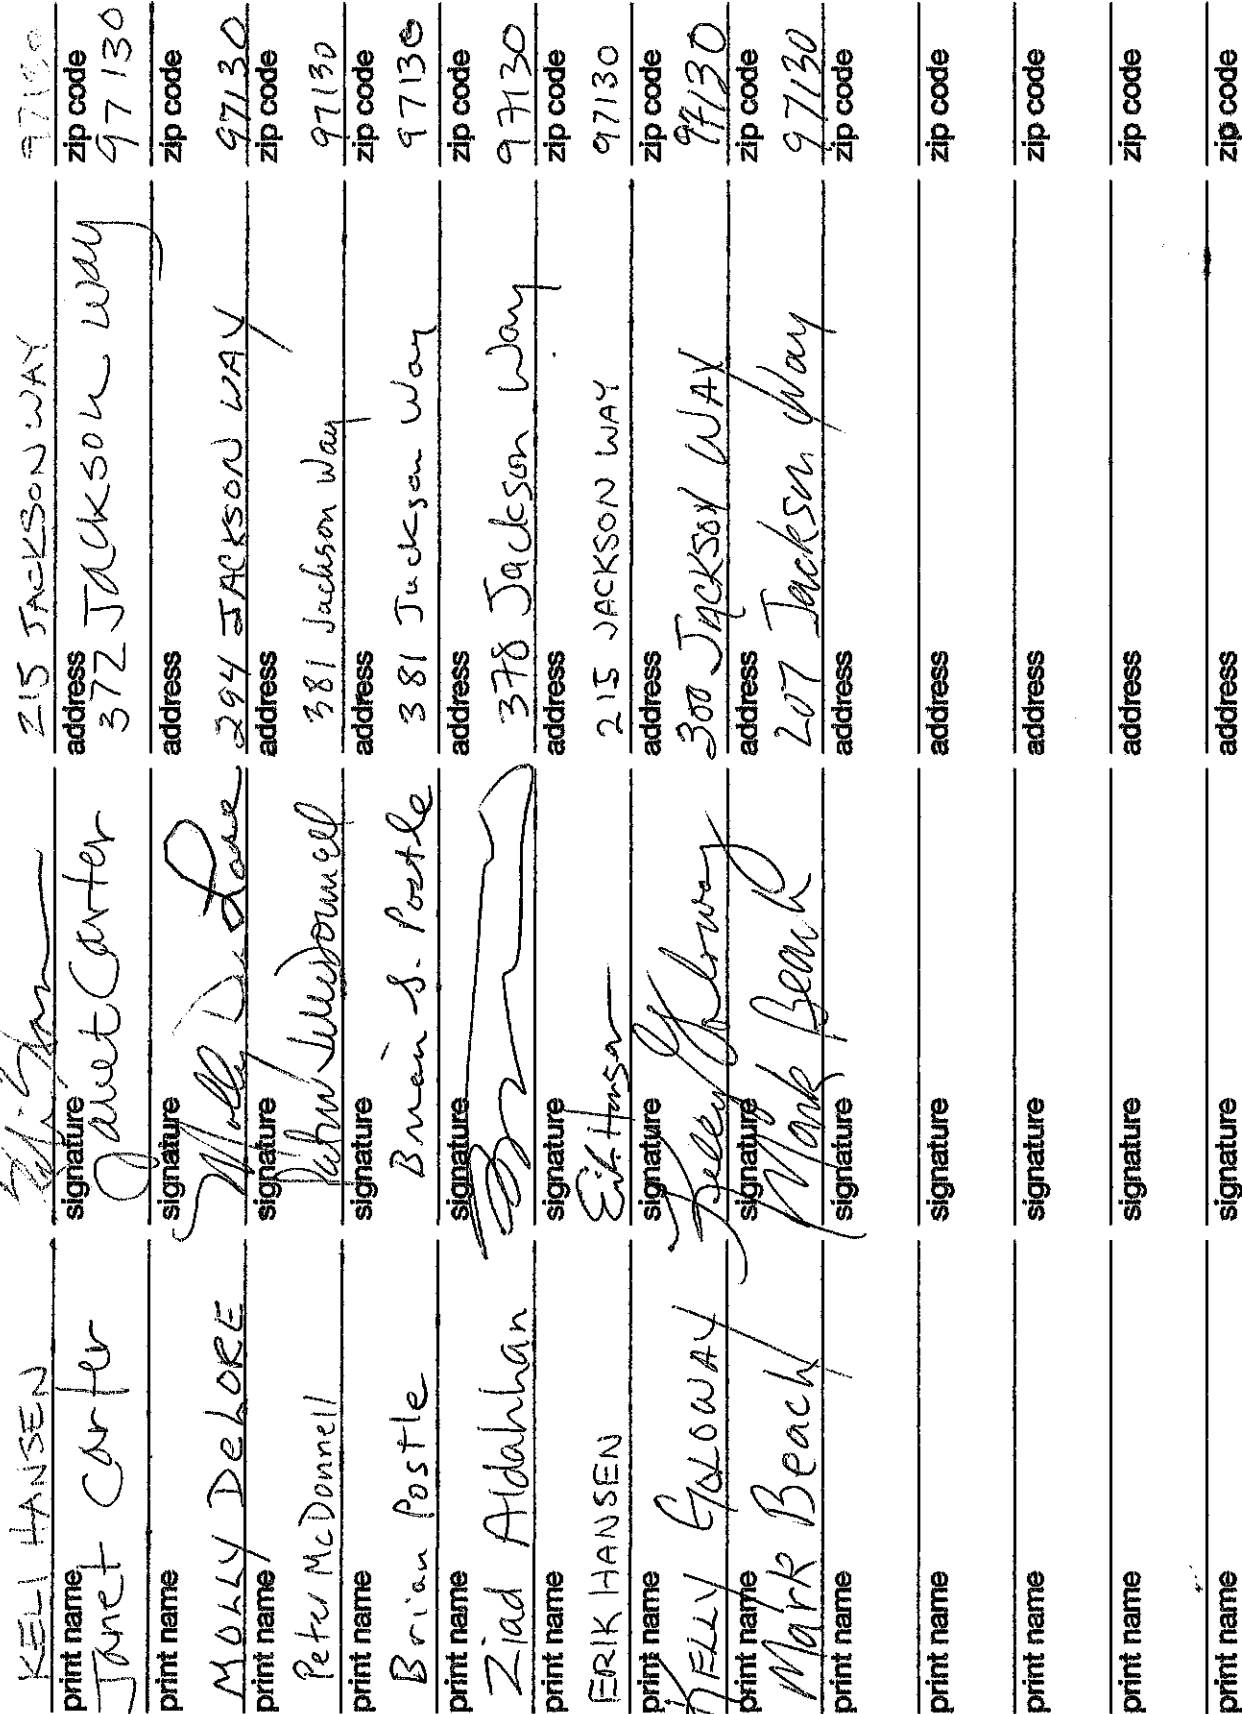 KELI HANSEN 215 JACKSON WAY 97130
print name signature address zip code
Janet Carter Janet Carter 372 Jackson Way 97130
print name signature address zip code
MOLLY DeLORE 294 JACKSON WAY 97130
print name signature address zip code
Peter McDonnell 381 Jackson Way 97130
print name signature address zip code
Brian Postle Brian S. Postle 381 Jackson Way 97130
print name signature address zip code
Ziad Aldahhan 378 Jackson Way 97130
print name signature address zip code
ERIK HANSEN Erik Hansen 215 JACKSON WAY 97130
print name signature address zip code
KELLY GALOWAY Kelly Galoway 300 JACKSON WAY 97130
print name signature address zip code
Mark Beach Mark Beach 207 Jackson Way 97130
print name signature address zip code
print name signature address zip code
print name signature address zip code
print name signature address zip code
print name signature address zip code